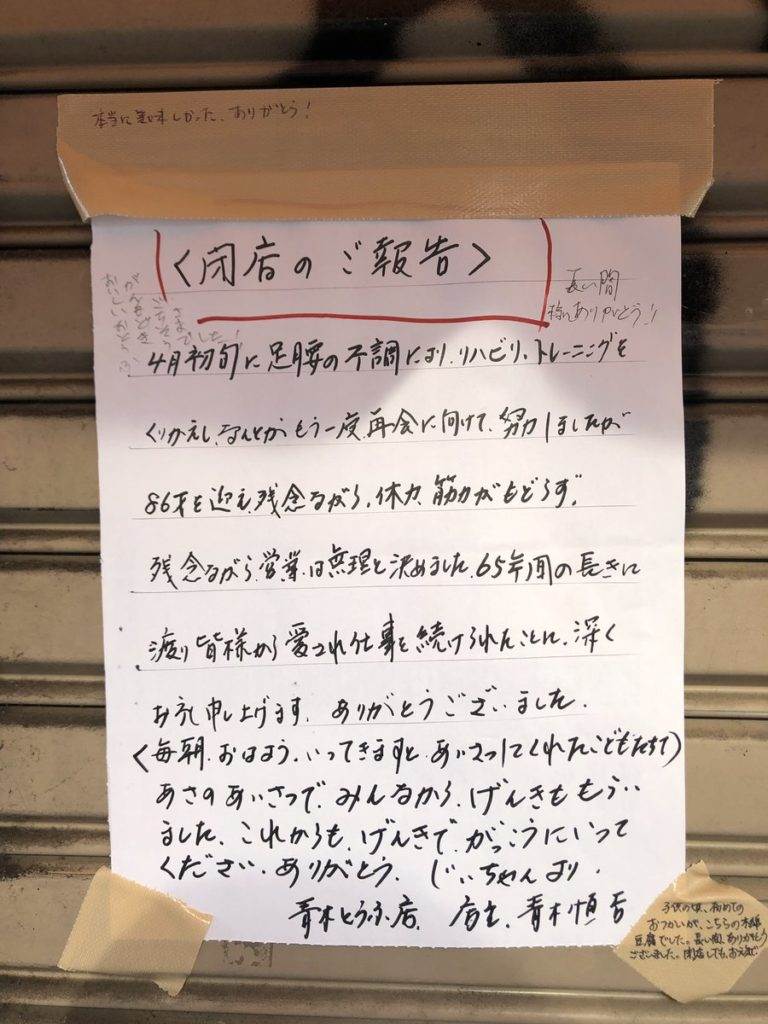 本当に美味しかった、ありがとう！
<閉店のご報告>
長い間
様にありがとう!!
おいしいおとうふ
がんもどき
ごちそう
さまでした！
4月初旬に足腰の不調により、リハビリ、トレーニングを
くりかえし、なんとか、もう一度、再会に向けて、努力しましたが
86才を迎え、残念ながら、体力、筋力がもどらず、
残念ながら、営業は無理と決めました、65年間の長きに
渡り皆様から愛され仕事を続けられたことに、深く
お礼申し上げます、ありがとうございました、
(毎朝、おはよう、いってきますと、あいさつしてくれたこどもたちへ)
あさのあいさつで、みんなから、げんきももらい
ました、これからも、げんきで、がっこうにいって
ください、ありがとう、じいちゃんより、
青木とうふ店、店主、青木慎吾
子供の頃、初めての
おつかいが、こちらの木綿
豆腐でした。長い間、ありがとう
ございました。閉店しても、お元気で